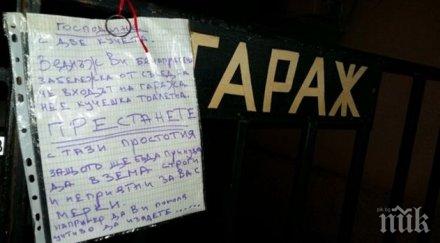 ГОСПОДИНЕ
С ДВЕ КУЧЕТА.
ВЕДНЪЖ ВИ БЕ НАПРАВЕНА
ЗАБЕЛЕЖКА ОТ СЪСЕДА,
ЧЕ ВХОДЪТ НА ГАРАЖА
НЕ Е КУЧЕШКА ТОАЛЕТНА.
ПРЕСТАНЕТЕ
С ТАЗИ ПРОСТОТИЯ
ЗАЩОТО ЩЕ БЪДА ПРИНУДЕН
ДА ВЗЕМА СТРОГИ
И НЕПРИЯТНИ ЗА ВАС
МЕРКИ.
НАПРИМЕР ДА ВИ ПОМОЛЯ
УЧТИВО ДА ИЗЯДЕТЕ......
ГАРАЖ
пик